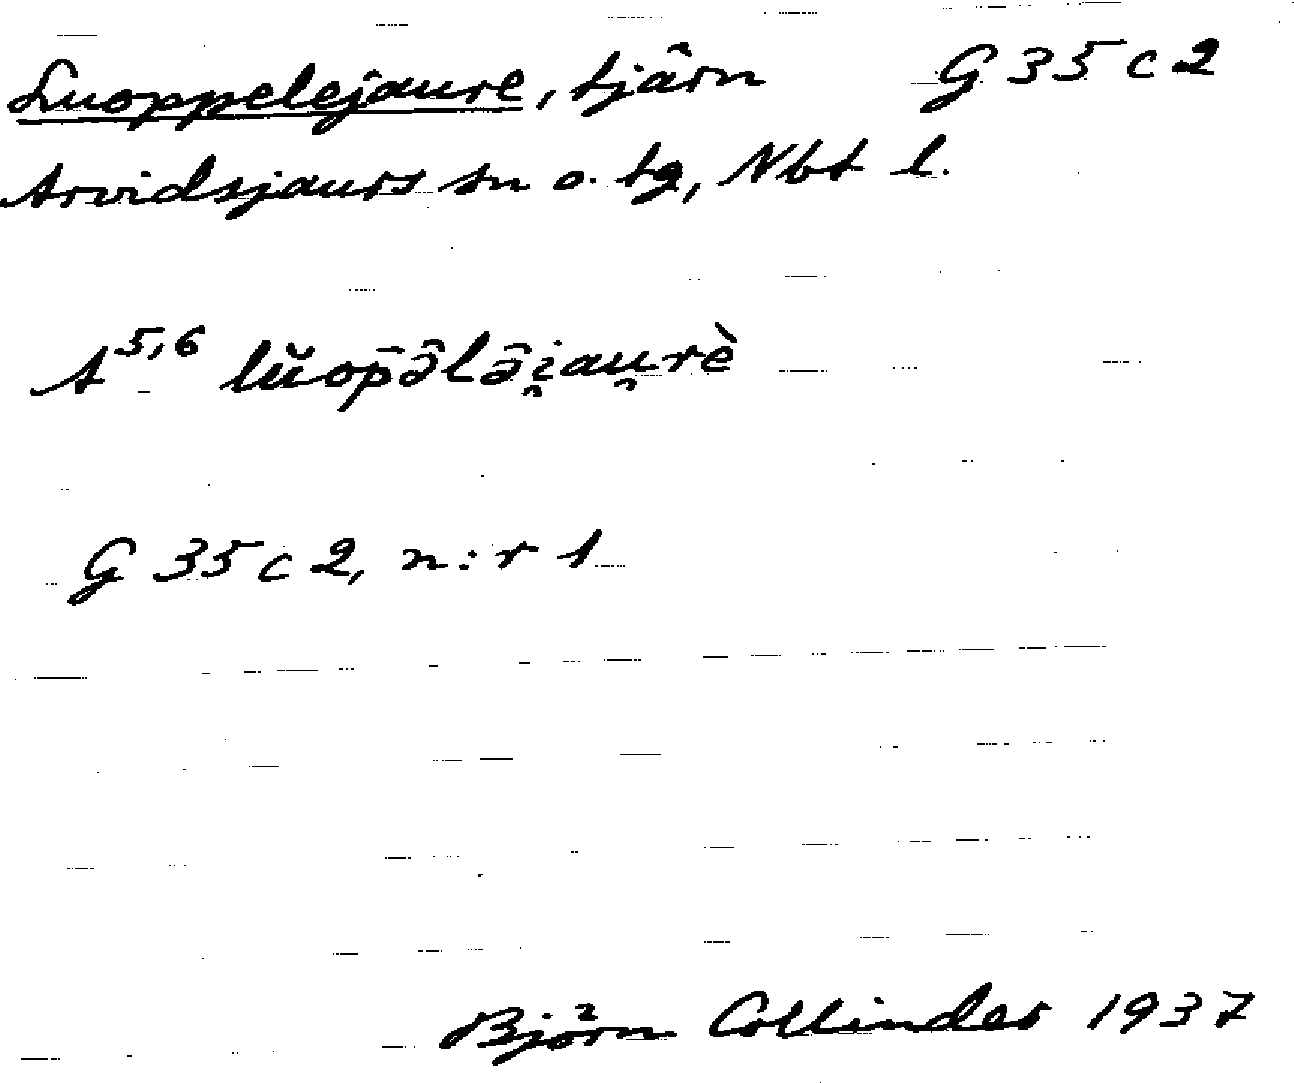 Luoppelejaure, tjärn G 35 c 2
Arvidsjaurs sn o. tg, Nbt l.
A⁵,⁶ lŭop̄ə̑lə̑i̯au̯rè
G 35 c 2, n:r 1
Björn Collinder 1937